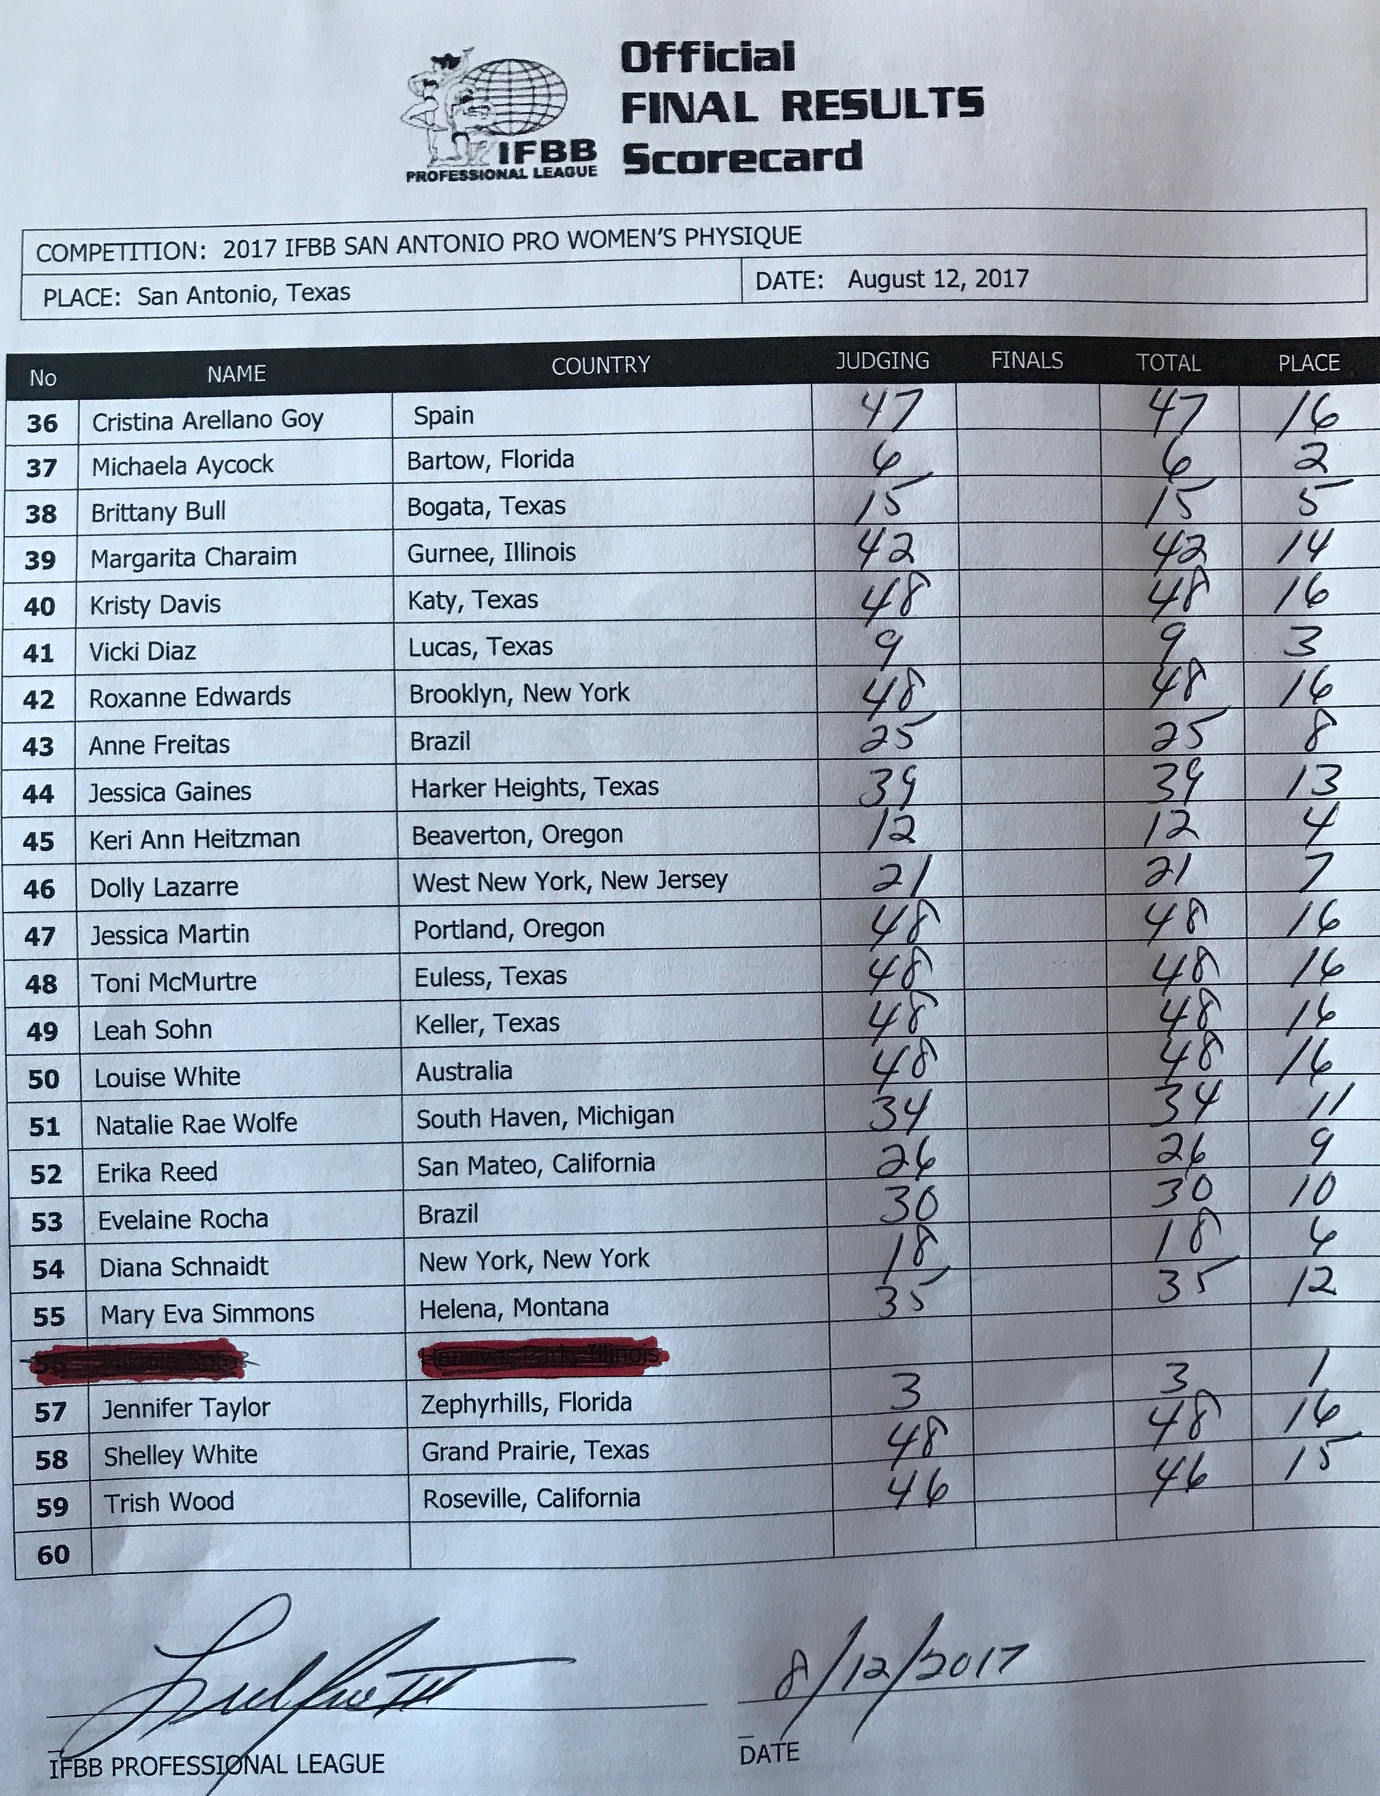 Official
FINAL RESULTS
Scorecard
IFBB
PROFESSIONAL LEAGUE
COMPETITION: 2017 IFBB SAN ANTONIO PRO WOMEN'S PHYSIQUE
PLACE: San Antonio, Texas DATE: August 12, 2017
No NAME COUNTRY JUDGING FINALS TOTAL PLACE
36 Cristina Arellano Goy Spain 47 47 16
37 Michaela Aycock Bartow, Florida 6 6 2
38 Brittany Bull Bogata, Texas 15 15 5
39 Margarita Charaim Gurnee, Illinois 42 42 14
40 Kristy Davis Katy, Texas 48 48 16
41 Vicki Diaz Lucas, Texas 9 9 3
42 Roxanne Edwards Brooklyn, New York 48 48 16
43 Anne Freitas Brazil 25 25 8
44 Jessica Gaines Harker Heights, Texas 39 39 13
45 Keri Ann Heitzman Beaverton, Oregon 12 12 4
46 Dolly Lazarre West New York, New Jersey 21 21 7
47 Jessica Martin Portland, Oregon 48 48 16
48 Toni McMurtre Euless, Texas 48 48 16
49 Leah Sohn Keller, Texas 48 48 16
50 Louise White Australia 48 48 16
51 Natalie Rae Wolfe South Haven, Michigan 34 34 11
52 Erika Reed San Mateo, California 26 26 9
53 Evelaine Rocha Brazil 30 30 10
54 Diana Schnaidt New York, New York 18 18 6
55 Mary Eva Simmons Helena, Montana 35 35 12
Park, Illinois
57 Jennifer Taylor Zephyrhills, Florida 3 3 1
58 Shelley White Grand Prairie, Texas 48 48 16
59 Trish Wood Roseville, California 46 46 15
60
8/12/2017
IFBB PROFESSIONAL LEAGUE DATE